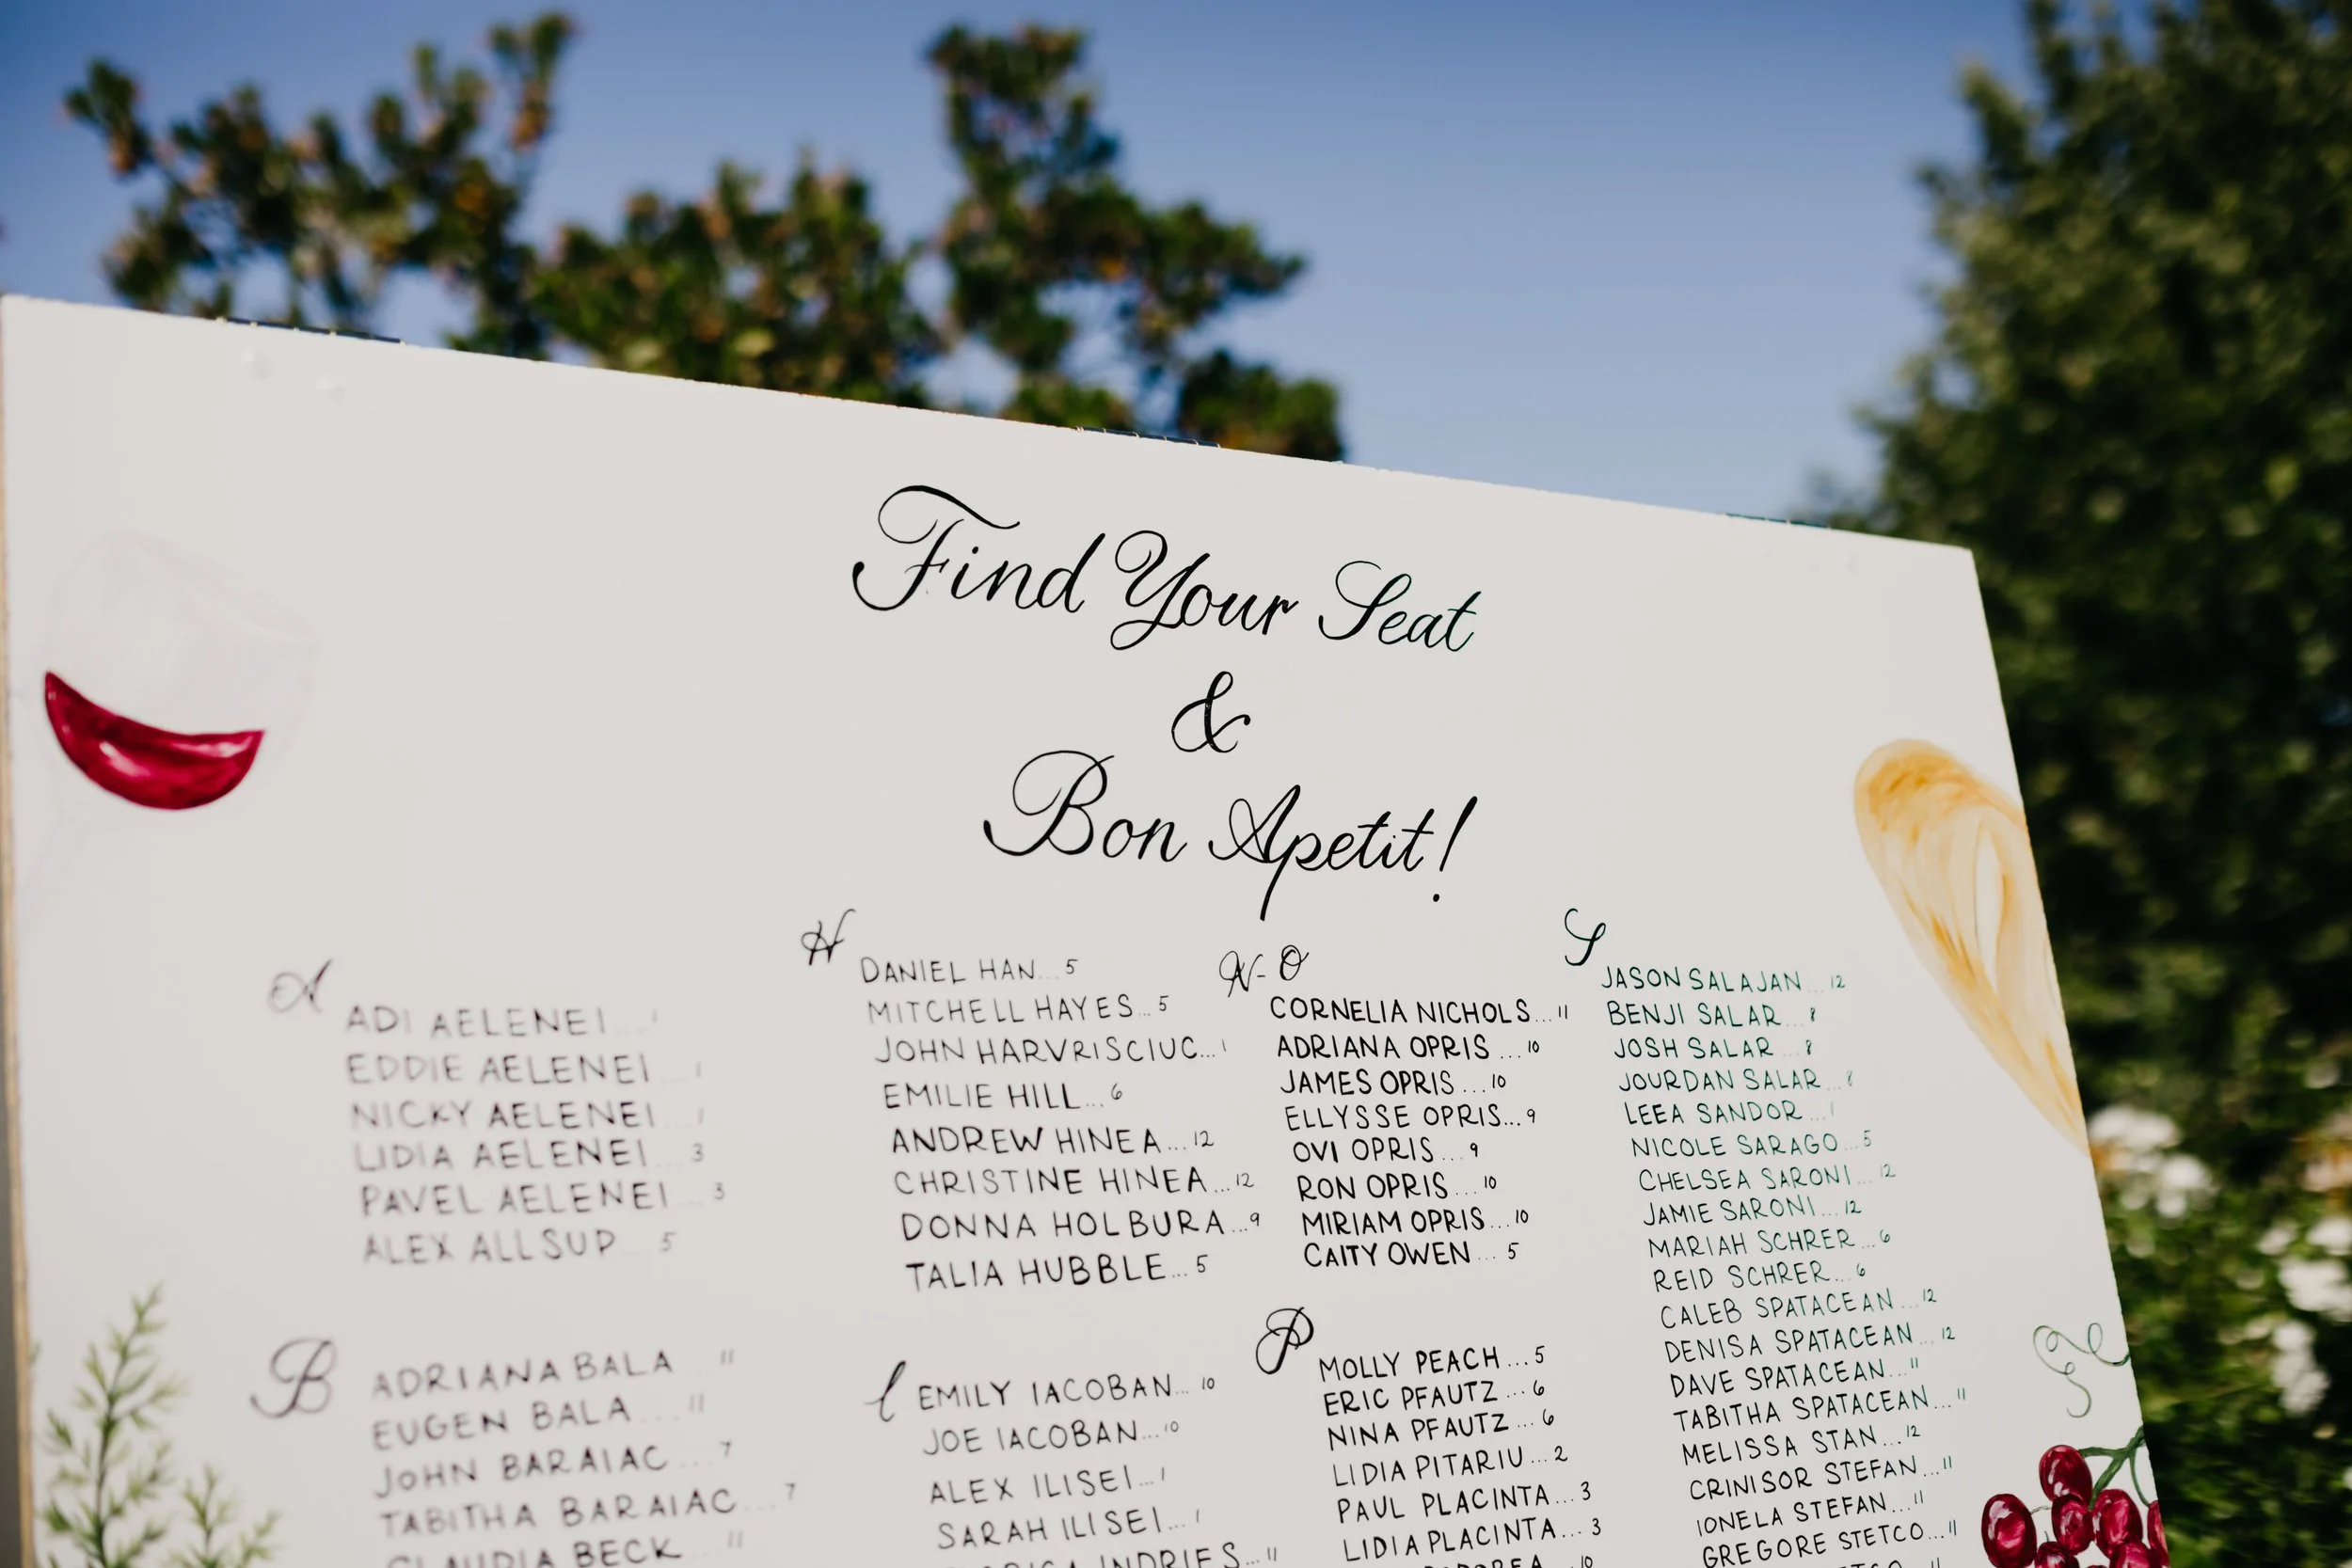 Find Your Seat
&
Bon Apetit!
A
ADI AELENEI ... 1
EDDIE AELENEI ... 1
NICKY AELENEI ... 1
LIDIA AELENEI ... 3
PAVEL AELENEI ... 3
ALEX ALLSUP ... 5
B
ADRIANA BALA ... 11
EUGEN BALA ... 11
JOHN BARAIAC ... 7
TABITHA BARAIAC ... 7
CLAUDIA BECK ... 11
H
DANIEL HAN... 5
MITCHELL HAYES... 5
JOHN HARVRISCIUC... 1
EMILIE HILL... 6
ANDREW HINEA ... 12
CHRISTINE HINEA ... 12
DONNA HOLBURA ... 9
TALIA HUBBLE ... 5
I
EMILY IACOBAN... 10
JOE IACOBAN... 10
ALEX ILISEI... 1
SARAH ILISEI... 1
INDRIES... 11
N-O
CORNELIA NICHOLS... 11
ADRIANA OPRIS ... 10
JAMES OPRIS ... 10
ELLYSSE OPRIS... 9
OVI OPRIS ... 9
RON OPRIS ... 10
MIRIAM OPRIS... 10
CAITY OWEN ... 5
P
MOLLY PEACH ... 5
ERIC PFAUTZ ... 6
NINA PFAUTZ ... 6
LIDIA PITARIU ... 2
PAUL PLACINTA ... 3
LIDIA PLACINTA... 3
10
S
JASON SALAJAN ... 12
BENJI SALAR ... 8
JOSH SALAR ... 8
JOURDAN SALAR ... 8
LEEA SANDOR ... 1
NICOLE SARAGO ... 5
CHELSEA SARONI ... 12
JAMIE SARONI ... 12
MARIAH SCHRER ... 6
REID SCHRER ... 6
CALEB SPATACEAN ... 12
DENISA SPATACEAN ... 12
DAVE SPATACEAN... 11
TABITHA SPATACEAN... 11
MELISSA STAN ... 12
CRINISOR STEFAN ... 11
IONELA STEFAN... 11
GREGORE STETCO... 11